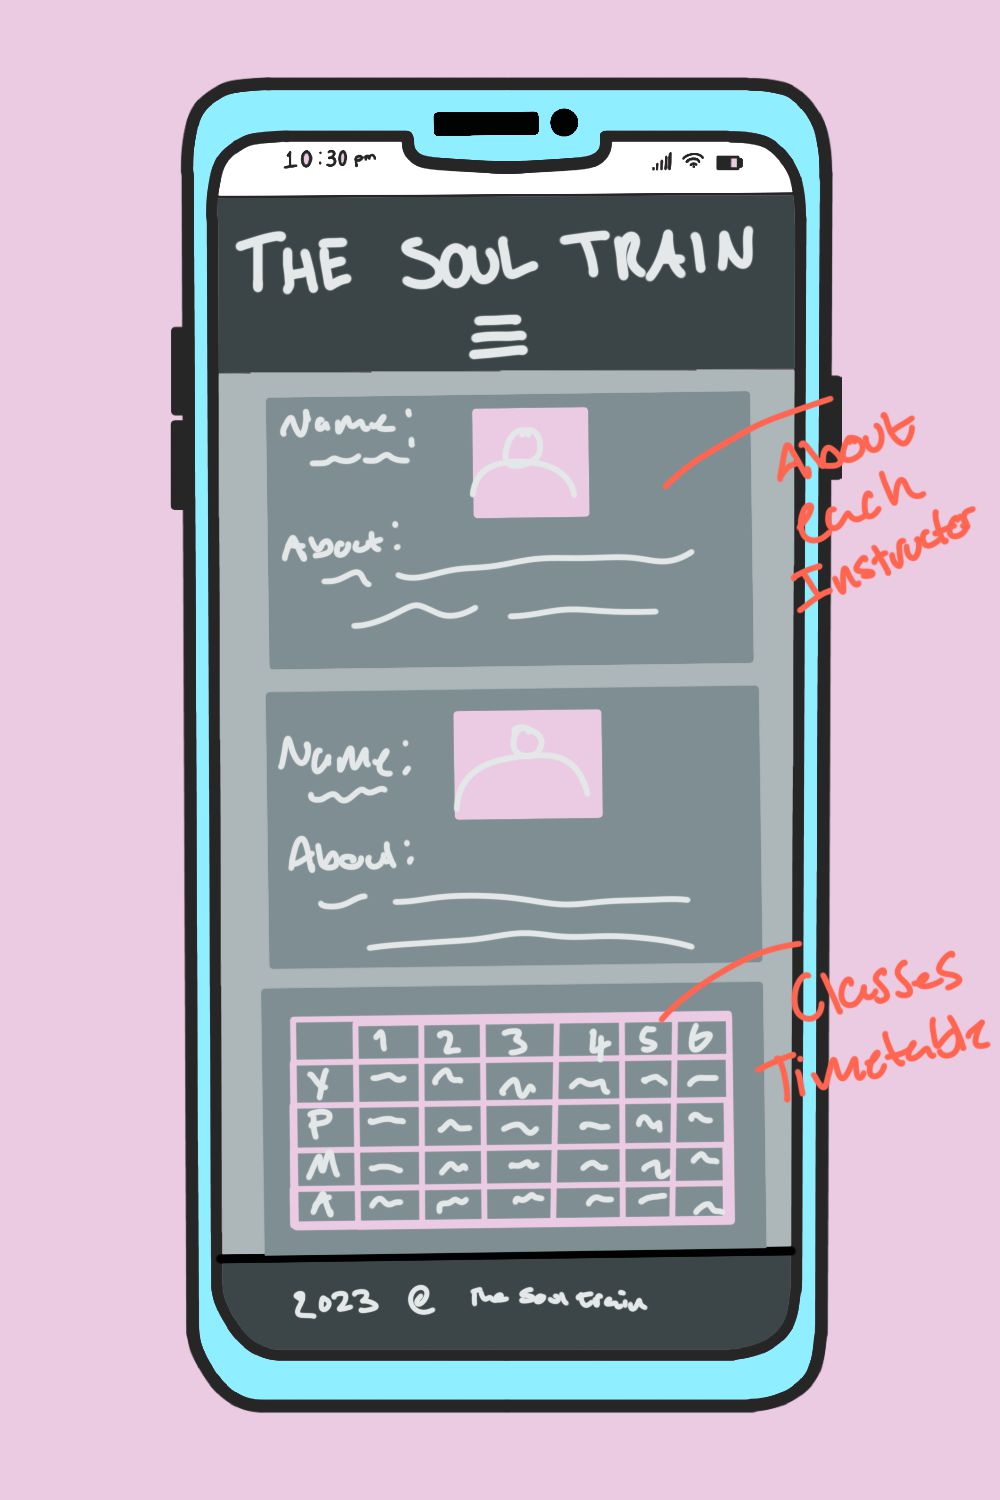 10:30 pm
THE SOUL TRAIN
Name:
About:
About
each
Instructor
Name:
About:
Classes
Timetable
1 2 3 4 5 6
Y
P
M
A
2023 @ The Soul Train